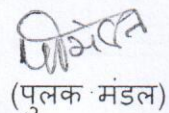 (पुलक मंडल)